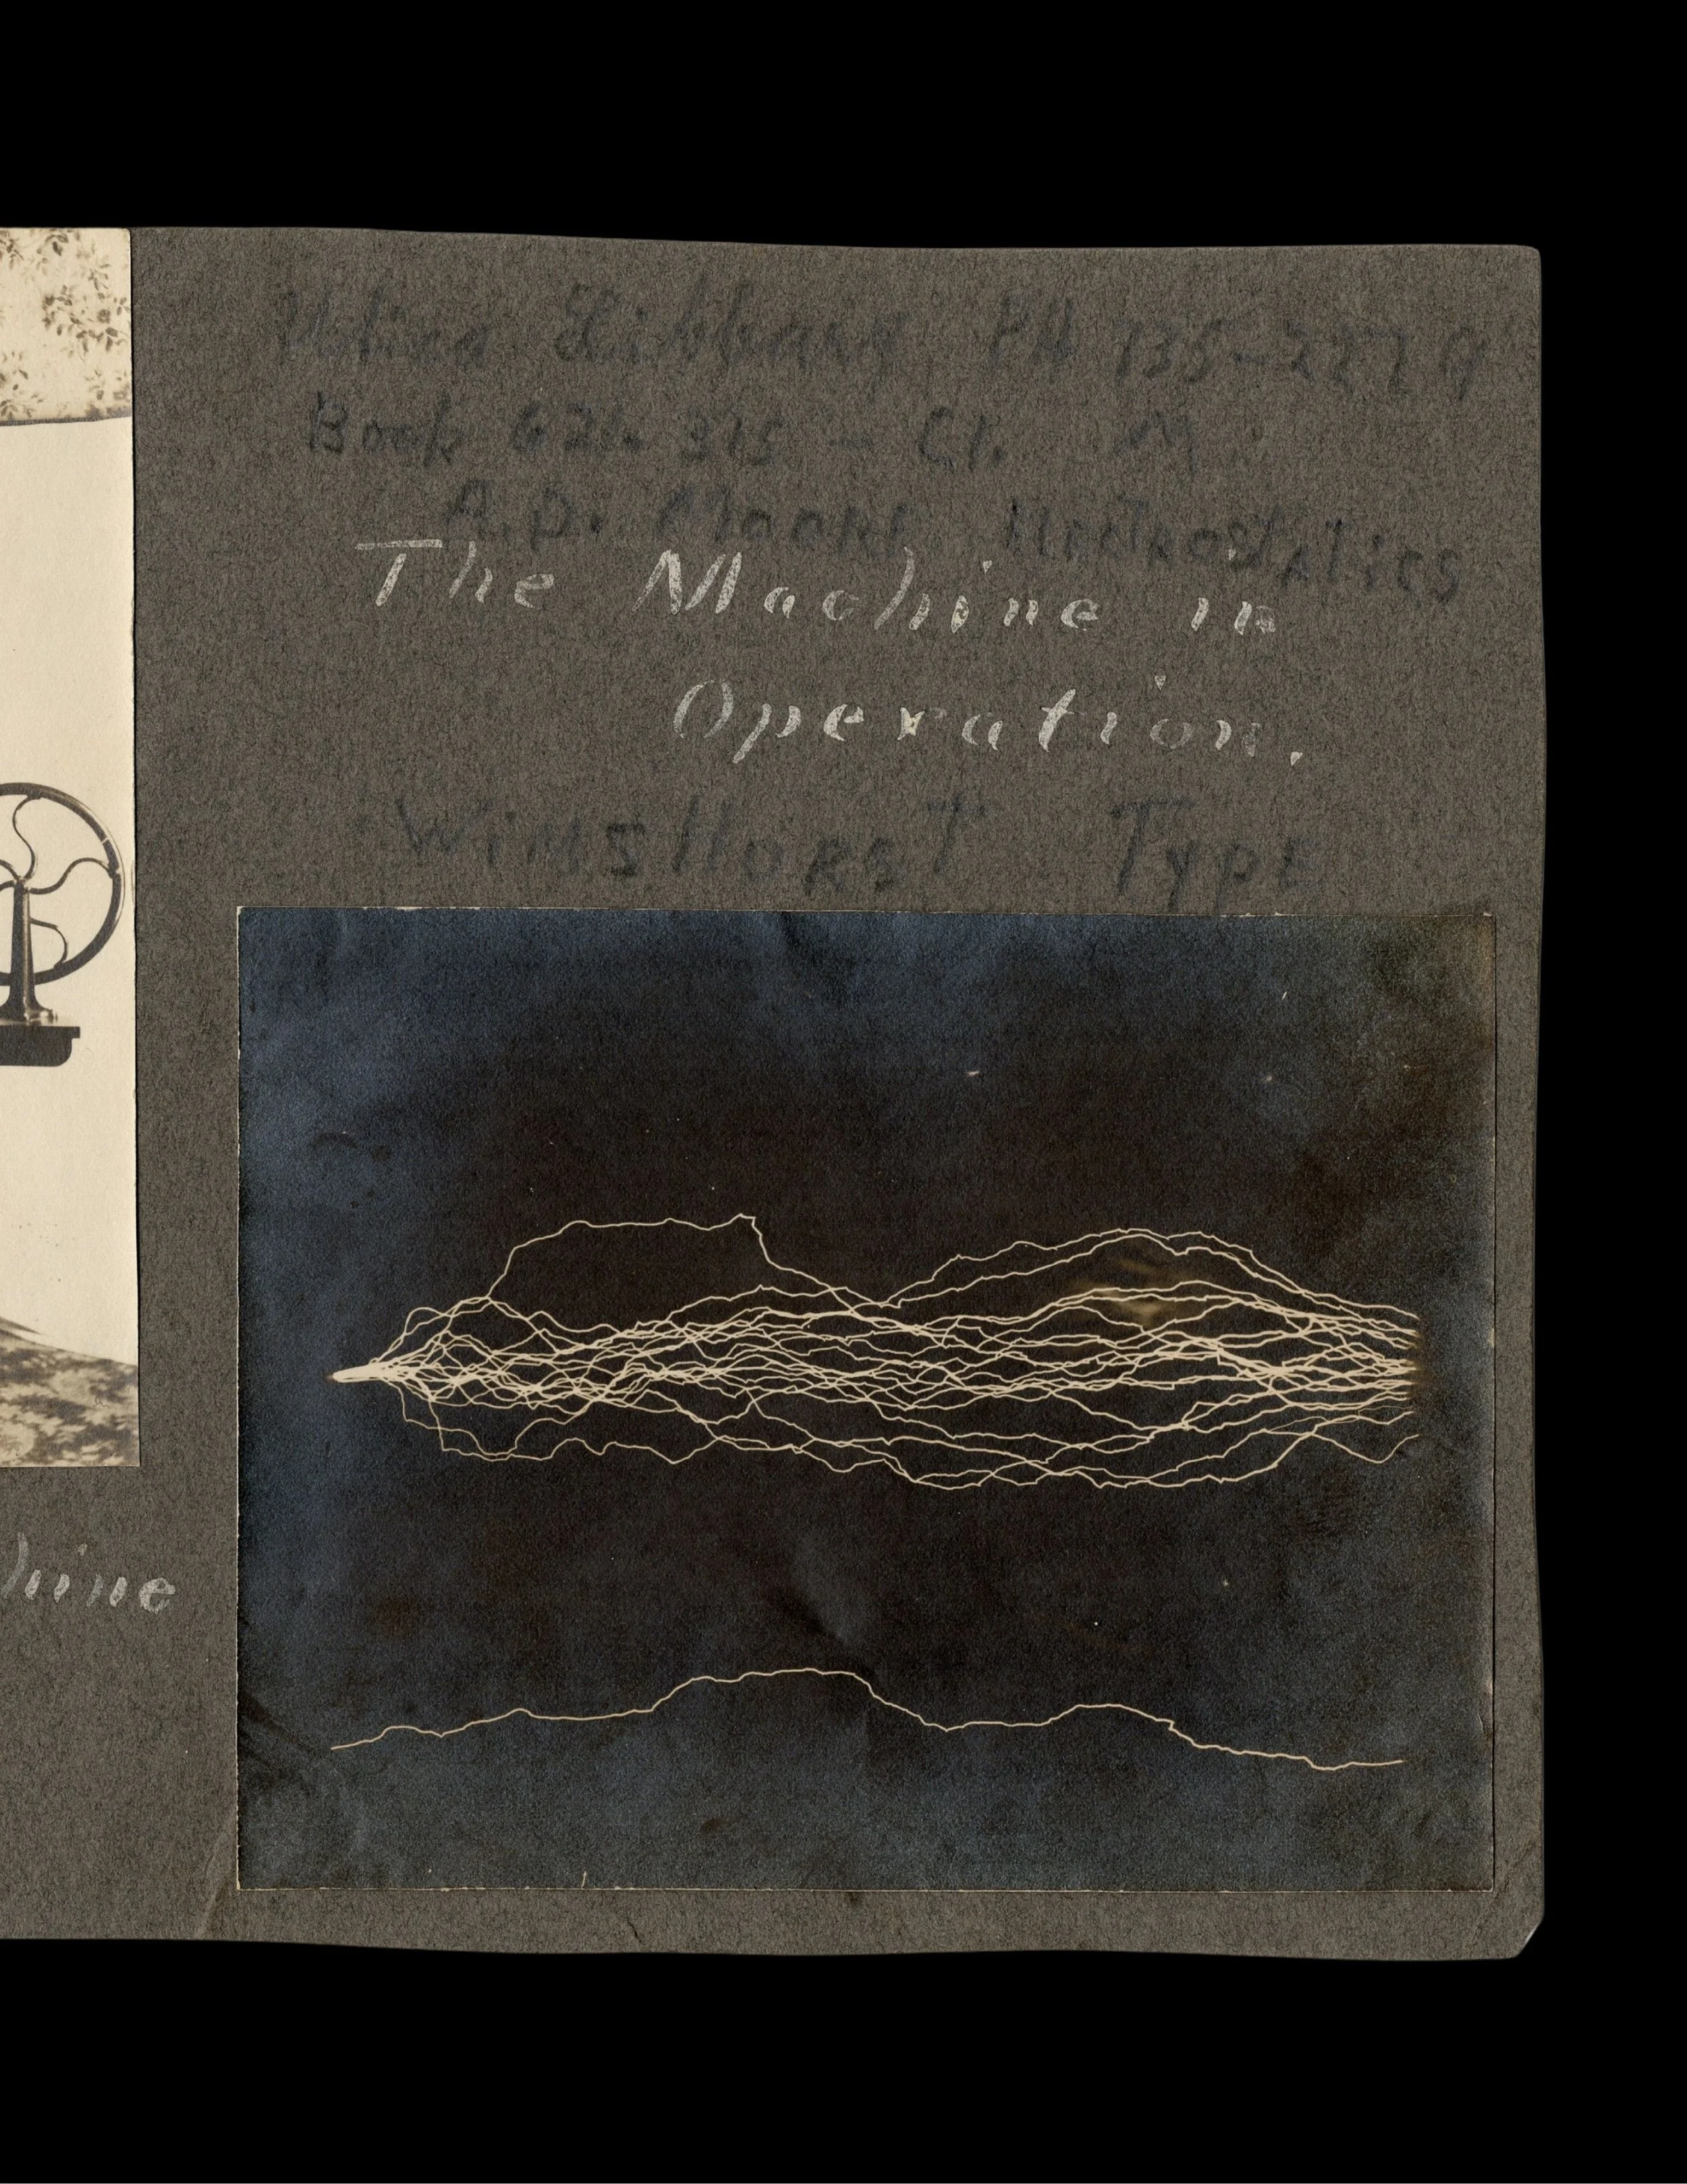 Utica Library PH 735-2279
Book 621.315 - Cl. M
A.D. Moore
The Machine in
Operation.
WiMSHURST TypE
hine